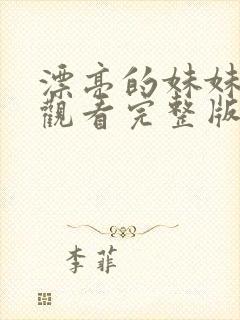 漂亮的妹妹
觀看完整版
李菲